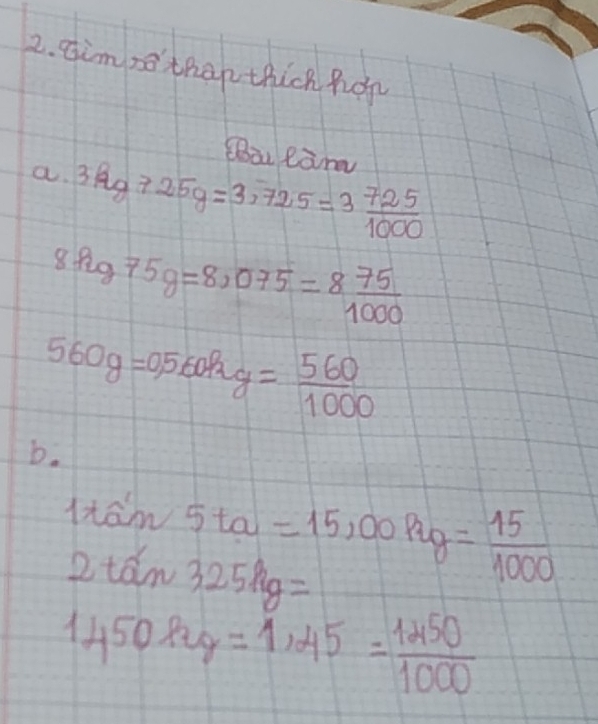 2. Tìm số thập thích hợp
Bài làm
a. 3kg 725g = 3,725 = 3 725/1000
8kg 75g = 8,075 = 8 75/1000
560g = 0,560kg = 560/1000
b.
1 tấn 5 tạ = 15,00 kg = 15/1000
2 tấn 325kg =
1450 kg = 1,45 = 1450/1000